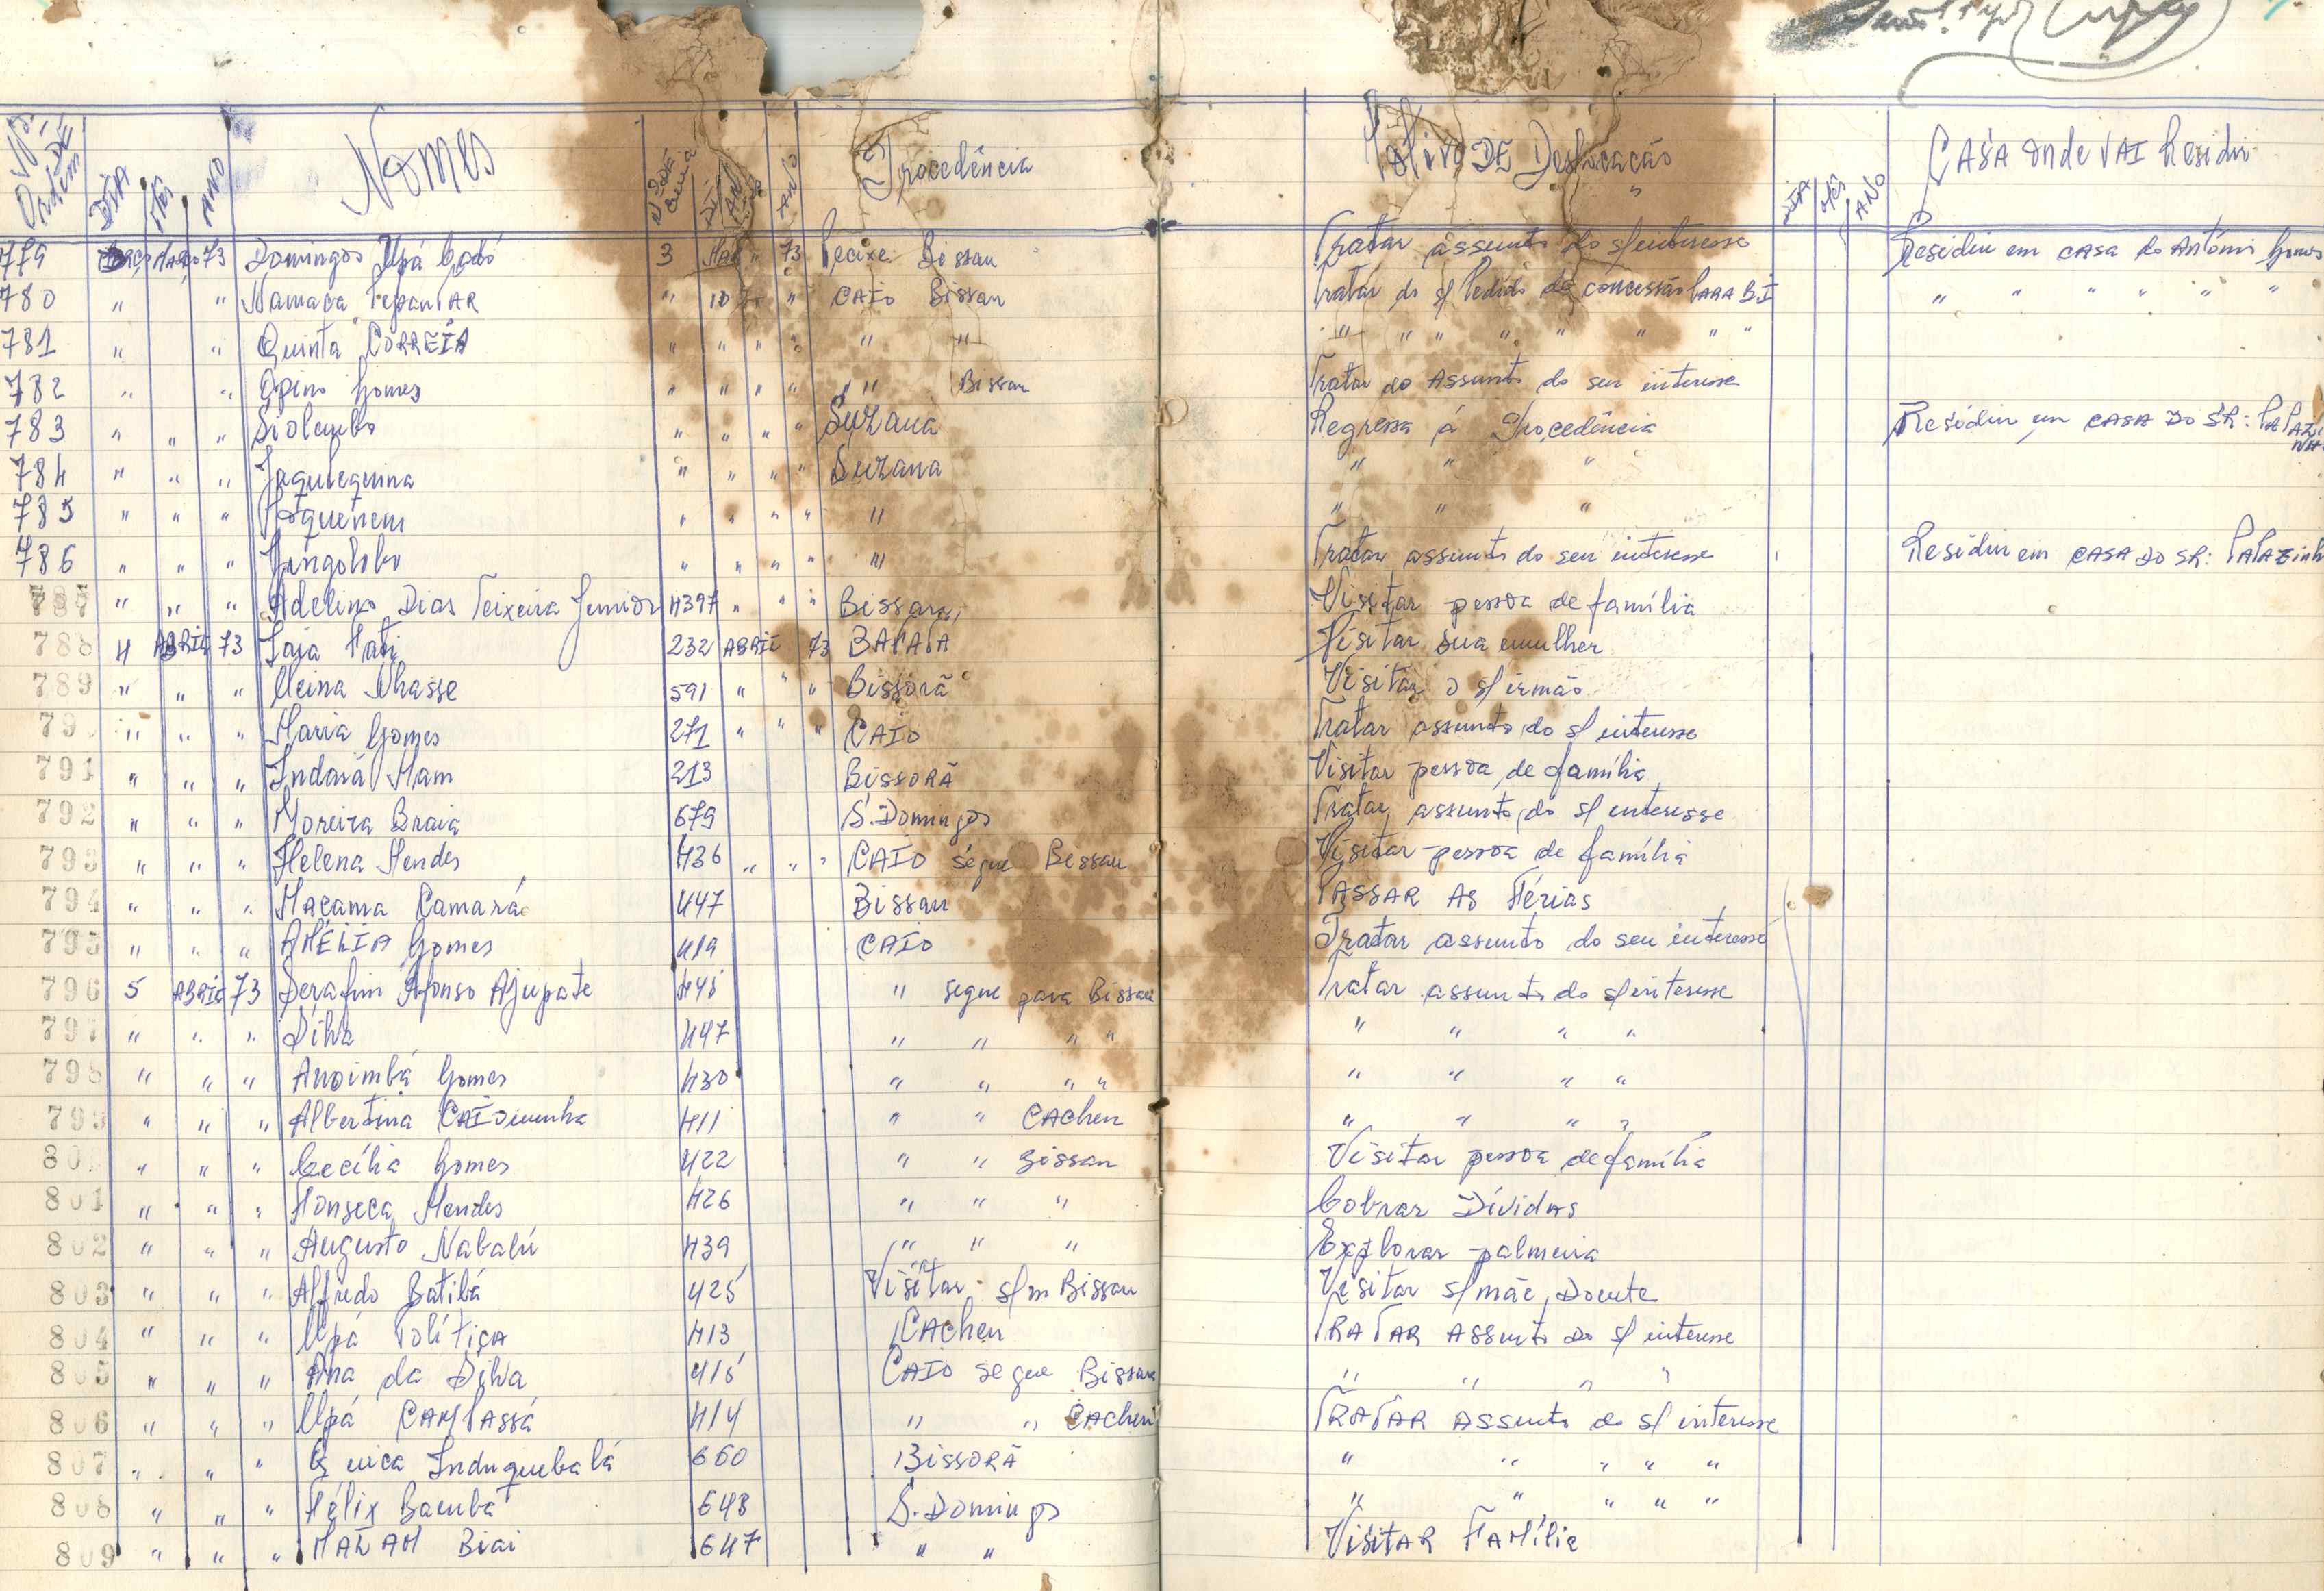 Nº DE Ordem DIA MÊS ANO Nomes Nº DE Guia DIA ANO Procedência Motivo DE Deslocação DIA MÊS ANO CASA onde VAI Residir
779 Março 73 Domingos Upá Cabó 3 Mar " 73 Pecixe Bissau Tratar assunto do s/ interesse Residir em casa do António Gomes
780 " " Namaca " 10 " CAIÓ Bissau Tratar do s/ Pedido de concessão PARA BI " " " " " "
781 " " Quinta CORREIA " " " " " " " " " " " " " "
782 " " Opino Gomes " " " " " " Bissau Tratar do Assunto do seu interesse
783 " " " Siolembo " " " " Suzana Regressa á Procedência Residir em CASA DO SR: PAPAZI NH
784 " " " Jequlequina " " " " Suzana " " "
785 " " " " " " " " " " "
786 " " " " " " " " Tratar assunto do seu interesse Residir em CASA DO SR: PAPAZinh
787 " " " Adelino Dias Teixeira Junior 4397 " " " Bissau Visitar pessoa de família
788 4 ABRIL 73 232 ABRIL 73 BAFATA Visitar sua mulher
789 " " " Nhasse 591 " " " Bissorã Visitar o s/ irmão
79 " " " Maria Gomes 271 " " " CAIÓ Tratar assunto do s/ interesse
791 " " " Indaiá Mam 213 BissORÃ Visitar pessoa de família
792 " " " Moreira Braia 679 S. Domingos Tratar assunto do s/ interesse
793 " " " Helena Mendes 436 " " " CAIÓ segue Bissau Visitar pessoa de família
794 " " " Macama Camará 447 Bissau PASSAR AS Férias
795 " " " AMÉLIA Gomes 419 CAIÓ Tratar assunto do seu interesse
796 5 ABRIL 73 Serafim Afonso Ajupate 445 " segue para Bissau Tratar assunto do s/ interesse
797 " " " Silva 447 " " " " " " " "
798 " " " Anoimbá Gomes 430 " " " " " " " "
799 " " " Albertina 411 " " CACheu " " " "
80 " " " Cecília Gomes 422 " " Bissau Visitar pessoa de família
801 " " " Fonseca Mendes 426 " " " Cobrar Dívidas
802 " " " Augusto Nabalú 439 " " " Explorar palmeira
803 " " " Alfredo Batibá 425 Visitar s/m Bissau Visitar s/ mãe, Doente
804 " " " Upá Política 413 CACheu TRATAR Assunto do s/ interesse
805 " " " Ana da Silva 415 CAIÓ segue Bissau " " " "
806 " " " Upá CAMPASSÁ 414 " " CACheu TRATAR Assunto do s/ interesse
807 " " " Induquebalá 660 BissORÃ " " " " "
808 " " " Félix Bambá 648 S. Domingos " " " " "
809 " " " MALAM Biai 647 " " Visitar FaMília